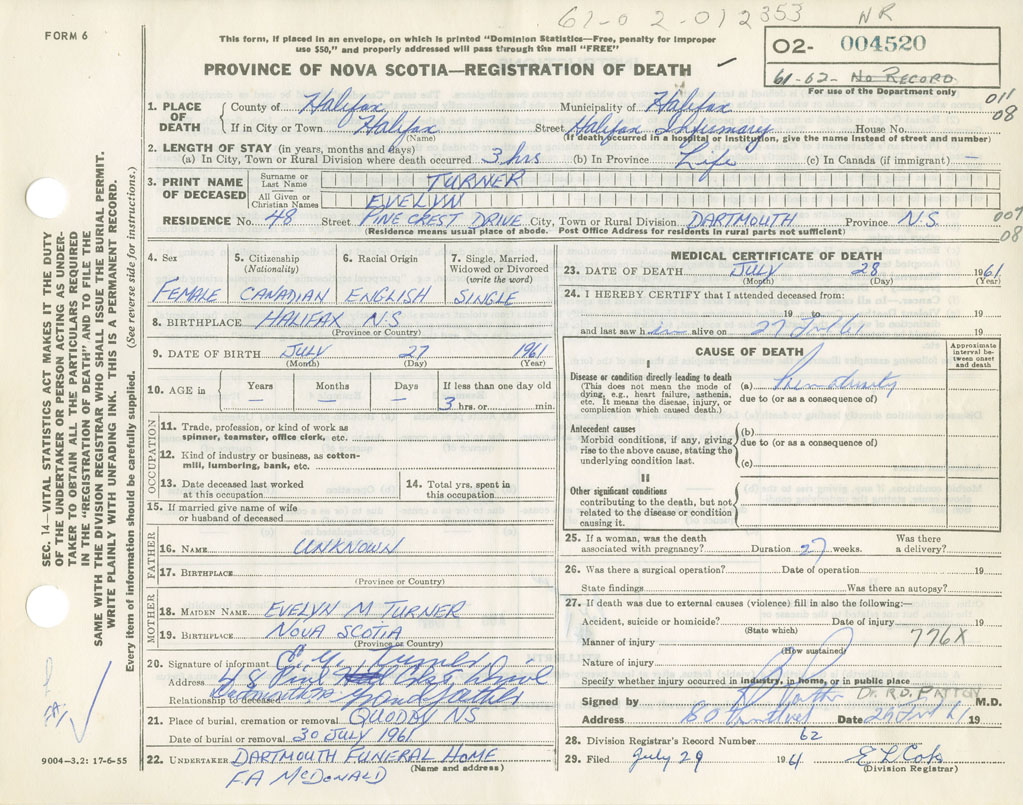 61-02-012353 NR
FORM 6
This form, if placed in an envelope, on which is printed "Dominion Statistics—Free, penalty for improper
use $50," and properly addressed will pass through the mail "FREE"
02- 004520
61-02- No Record
For use of the Department only
PROVINCE OF NOVA SCOTIA—REGISTRATION OF DEATH
011
08
1. PLACE OF DEATH
County of Halifax Municipality of Halifax
If in City or Town Halifax Street Halifax Infirmary House No.
(Name) (If death occurred in a hospital or institution, give the name instead of street and number)
2. LENGTH OF STAY (in years, months and days)
(a) In City, Town or Rural Division where death occurred 3 hrs (b) In Province Life (c) In Canada (if immigrant) —
3. PRINT NAME OF DECEASED
Surname or Last Name TURNER
All Given or Christian Names EVELYN
RESIDENCE No. 48 Street PINE CREST DRIVE City, Town or Rural Division DARTMOUTH Province N.S.
(Residence means usual place of abode. Post Office Address for residents in rural parts not sufficient)
007
08
4. Sex FEMALE
5. Citizenship (Nationality) CANADIAN
6. Racial Origin ENGLISH
7. Single, Married, Widowed or Divorced (write the word) SINGLE
8. BIRTHPLACE HALIFAX N.S
(Province or Country)
9. DATE OF BIRTH JULY 27 1961
(Month) (Day) (Year)
10. AGE in Years Months Days If less than one day old
— — — 3 hrs. or min.
OCCUPATION
11. Trade, profession, or kind of work as
spinner, teamster, office clerk, etc.
12. Kind of industry or business, as cotton-
mill, lumbering, bank, etc.
13. Date deceased last worked
at this occupation
14. Total yrs. spent in
this occupation
15. If married give name of wife
or husband of deceased
FATHER
16. NAME UNKNOWN
17. BIRTHPLACE
(Province or Country)
MOTHER
18. MAIDEN NAME EVELYN M TURNER
19. BIRTHPLACE NOVA SCOTIA
(Province or Country)
20. Signature of informant
Address 48 Pine Crest Drive
Relationship to deceased Dartmouth Grandfather
21. Place of burial, cremation or removal QUODDY NS
Date of burial or removal 30 JULY 1961
22. UNDERTAKER DARTMOUTH FUNERAL HOME
(Name and address)
F.A McDONALD
MEDICAL CERTIFICATE OF DEATH
23. DATE OF DEATH JULY 28 1961
(Month) (Day) (Year)
24. I HEREBY CERTIFY that I attended deceased from:
19 to 19
and last saw h alive on 27 19
CAUSE OF DEATH
Approximate interval between onset and death
I
Disease or condition directly leading to death
(This does not mean the mode of
dying, e.g., heart failure, asthenia,
etc. It means the disease, injury, or
complication which caused death.)
(a) Prematurity
due to (or as a consequence of)
Antecedent causes
Morbid conditions, if any, giving
rise to the above cause, stating the
underlying condition last.
(b)
due to (or as a consequence of)
(c)
II
Other significant conditions
contributing to the death, but not
related to the disease or condition
causing it.
25. If a woman, was the death
associated with pregnancy? Duration 27 weeks. Was there
a delivery?
26. Was there a surgical operation? Date of operation 19
State findings Was there an autopsy?
27. If death was due to external causes (violence) fill in also the following:—
Accident, suicide or homicide? Date of injury 19
(State which)
Manner of injury 776X
(How sustained)
Nature of injury
Specify whether injury occurred in industry, in home, or in public place
Signed by Dr. R.D. PATTON M.D.
Address Date 19
28. Division Registrar's Record Number 62
29. Filed July 29 1961
(Division Registrar)
SEC. 14—VITAL STATISTICS ACT MAKES IT THE DUTY
OF THE UNDERTAKER OR PERSON ACTING AS UNDER-
TAKER TO OBTAIN ALL THE PARTICULARS REQUIRED
IN THE "REGISTRATION OF DEATH" AND TO FILE THE
SAME WITH THE DIVISION REGISTRAR WHO SHALL ISSUE THE BURIAL PERMIT.
WRITE PLAINLY WITH UNFADING INK. THIS IS A PERMANENT RECORD.
Every item of information should be carefully supplied. (See reverse side for instructions.)
9004—3.2: 17-6-55